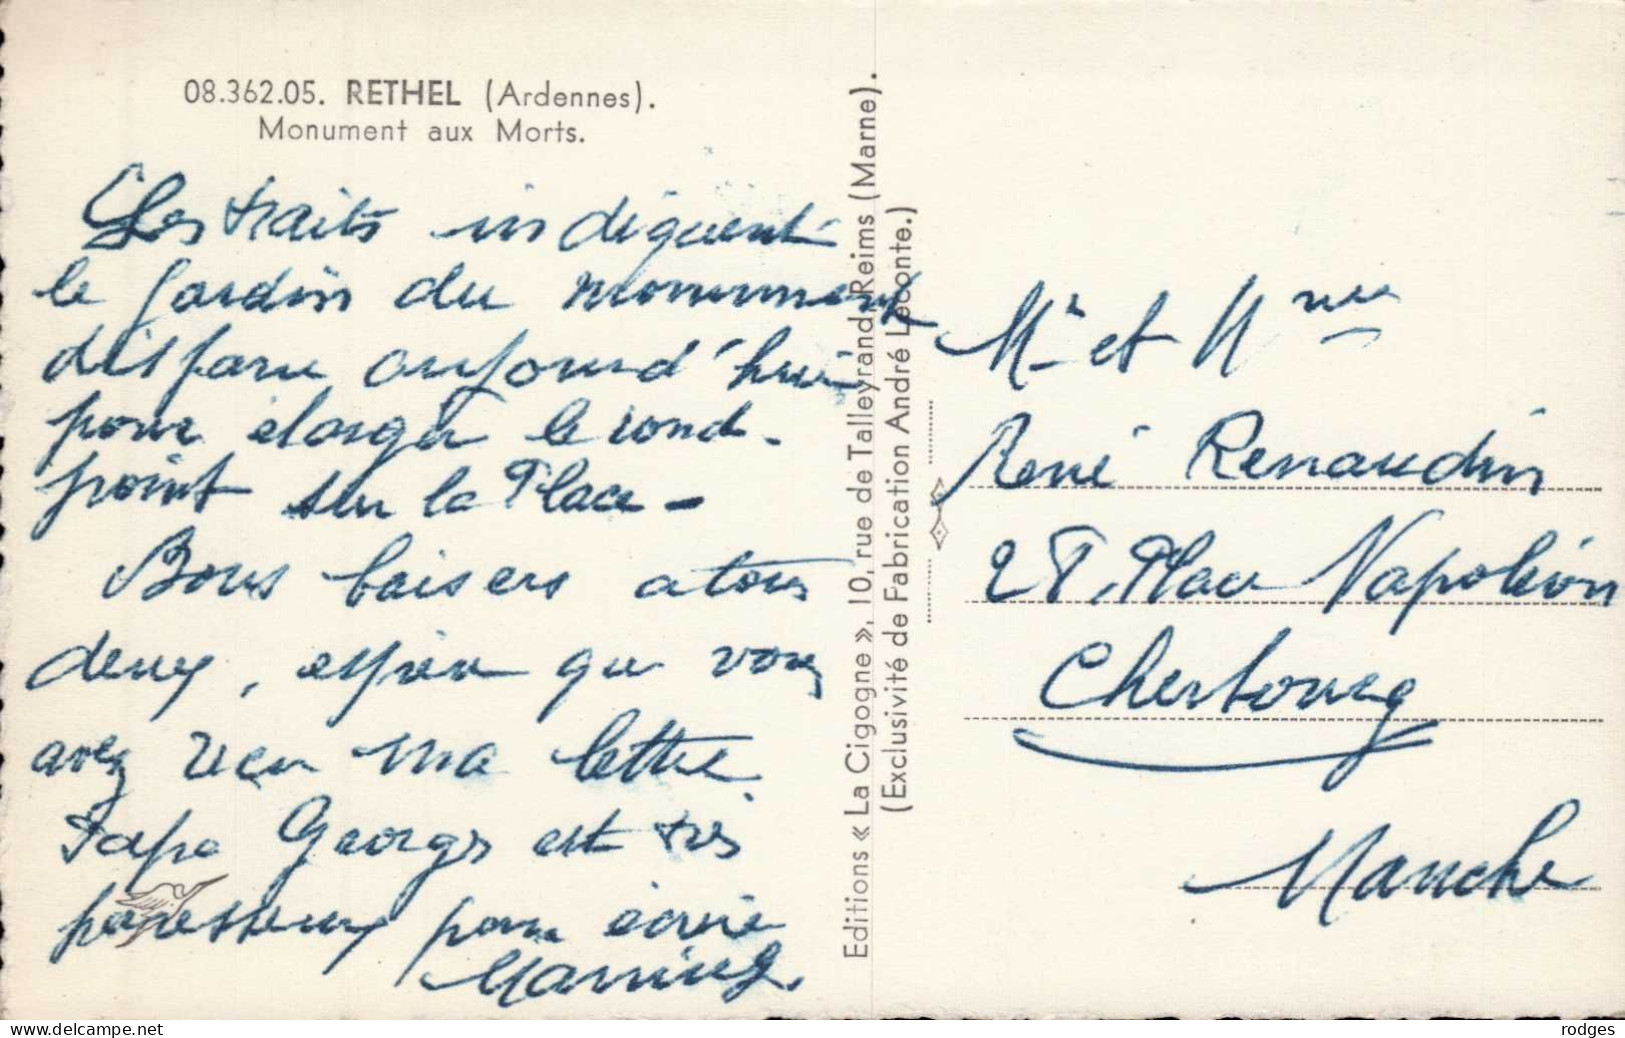 08.362.05. RETHEL (Ardennes).
Monument aux Morts.
Les traits indiquent
le jardin du monument
disparu aujourd'hui
pour élargir le rond-
point sur la Place -
Bons baisers a tous
deux, espère que vous
avez recu ma lettre
Papa Georges est très
paresseux pour écrire
Editions « La Cigogne », 10, rue de Talleyrand, Reims (Marne).
(Exclusivité de Fabrication André Leconte.)
Mr et Mme
René Renaudin
Place Napoléon
Cherbourg
Manche
rodges